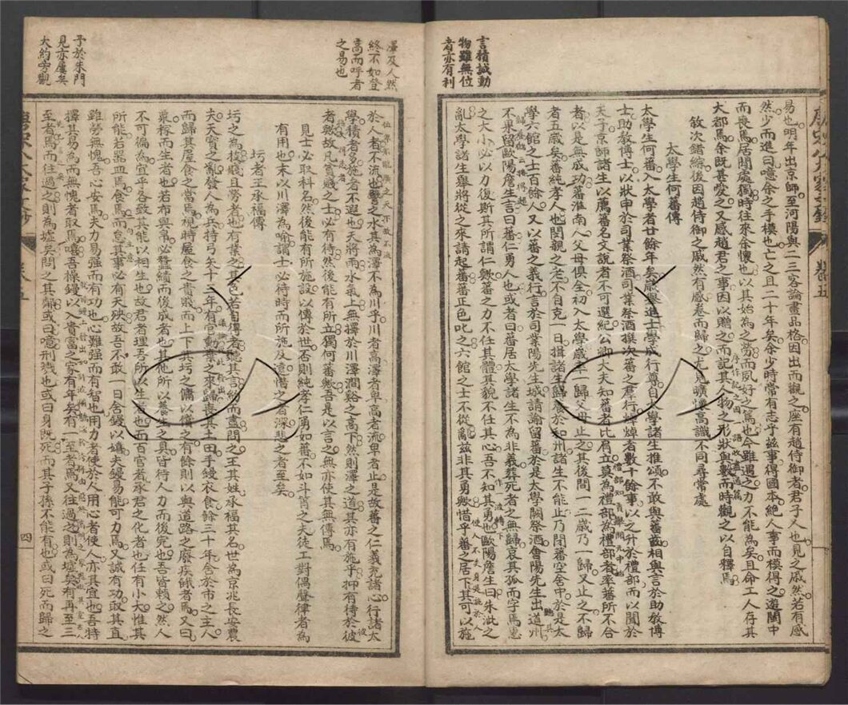 言積誠動
物雖無位
者亦有利
易也明年出京師至河陽與二三客論畫品格因出而觀之座有趙侍御者君子人也見之戚然若有感
然少而進曰噫余之手摸也亡之且二十年矣余少時常有志乎茲事得國本絕人事而摸得之遊閩中
而喪焉居閒處獨時往來余懷也以其始為之勞而夙好之篤也今雖遇之力不能為矣且命工人存其
大都焉余既甚愛之又感趙君之事因以贈之而記其人物之形狀與數而時觀之以自釋焉
敘次錯綜後因趙侍御之戚然有感卷而歸之尤見曠懷高識不同尋常處
太學生何蕃傳
太學生何蕃入太學者廿餘年矣歲舉進士學成行尊自太學諸生推頌不敢與蕃齒相與言於助教博
士助教博士以狀申於司業祭酒司業祭酒撰次蕃之羣行焯焯者數十餘事以之升於禮部而以聞於
天子京師諸生以薦蕃名文說者不可選紀公卿大夫知蕃者比肩立莫為禮部為禮部者率蕃所不合
者以是無成功蕃淮南人父母俱全初入太學歲率一歸父母止之其後間一二歲乃一歸又止之不歸
者五歲矣蕃純孝人也閔親之老不自克一日揖諸生歸養於和州諸生不能止乃閉蕃空舍中於是太
學六館之士百餘人又以蕃之義行言於司業陽先生城請諭留蕃於是太學闕祭酒會陽先生出道州
不果留歐陽詹生言曰蕃仁勇人也或者曰蕃居太學諸生不為非義葬死者之無歸哀其孤而字焉惠
之大小必以力復斯其所謂仁歟蕃之力不任其體其貌不任其心吾不知其勇也歐陽詹生曰朱泚之
亂太學諸生舉將從之來請起蕃蕃正色叱之六館之士不從亂茲非其勇歟惜乎蕃之居下其可以施
澤及人然
終不如登
高而呼者
之易也
於人者不流也譬之水其為澤不為川乎川者高澤者卑高者流卑者止是故蕃之仁義充諸心行諸太
學積者多施者不遐也天將雨水氣上無擇於川澤澗谿之高下然則澤之道其亦有施乎抑有待於彼
者歟故凡貧賤之士必有待然後能有所立獨何蕃歟吾是以言之無亦使其無傳焉
見士必取科名然後能有所施設以傳於世否則純孝仁勇如蕃不如斗筲之夫徒工對偶聲律者為
有用也末以川澤為喻謂士必待時而所施及遠惜之者深悲之者至矣
圬者王承福傳
圬之為技賤且勞者也有業之其色若自得者聽其言約而盡問之王其姓承福其名世為京兆長安農
夫天寶之亂發人為兵持弓矢十三年有官勳棄之來歸喪其土田手鏝衣食餘三十年舍於市之主人
而歸其屋食之當焉視時屋食之貴賤而上下其圬之傭以償之有餘則以與道路之廢疾餓者焉又曰
粟稼而生者也若布與帛必蠶績而後成者也其他所以養生之具皆待人力而後完也吾皆賴之然人
不可徧為宜乎各致其能以相生也故君者理吾所以生者也而百官者承君之化者也任有小大惟其
所能若器皿焉食焉而怠其事必有天殃故吾不敢一日舍鏝以嬉夫鏝易能可力焉又誠有功取其直
雖勞無愧吾心安焉夫力易強而有功也心難強而有智也用力者使於人用心者使人亦其宜也吾特
擇其易為而無愧者取焉嘻吾操鏝以入貴富之家有年矣有一至者焉又往過之則為墟矣有再至三
至者焉而往過之則為墟矣問之其鄰或曰噫刑戮也或曰身既死而其子孫不能有也或曰死而歸之
予於朱門
見亦屢矣
四